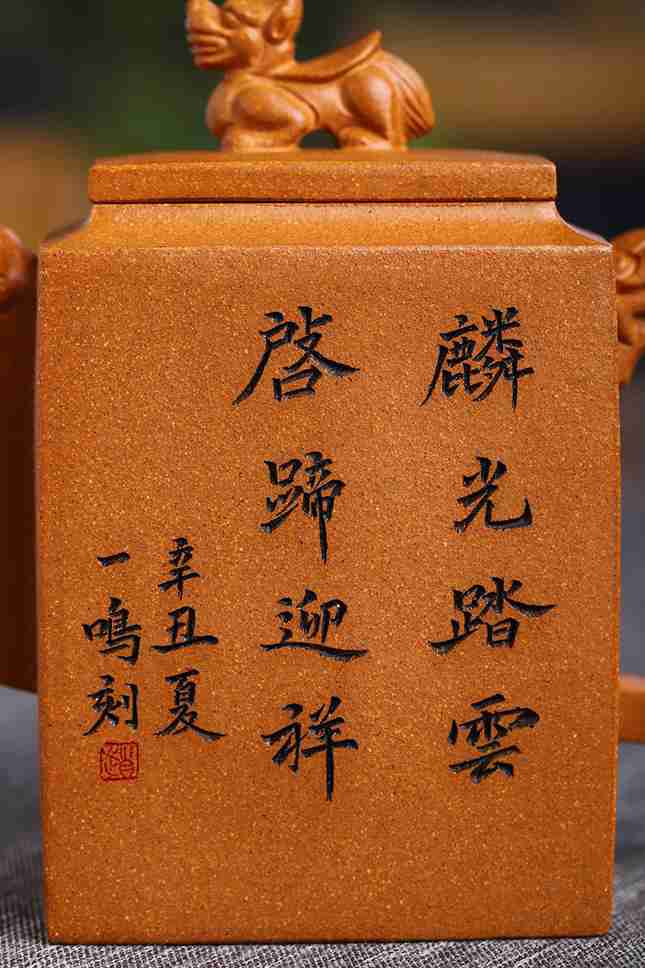 麟光踏雲
啓蹄迎祥
辛丑夏
一鳴刻